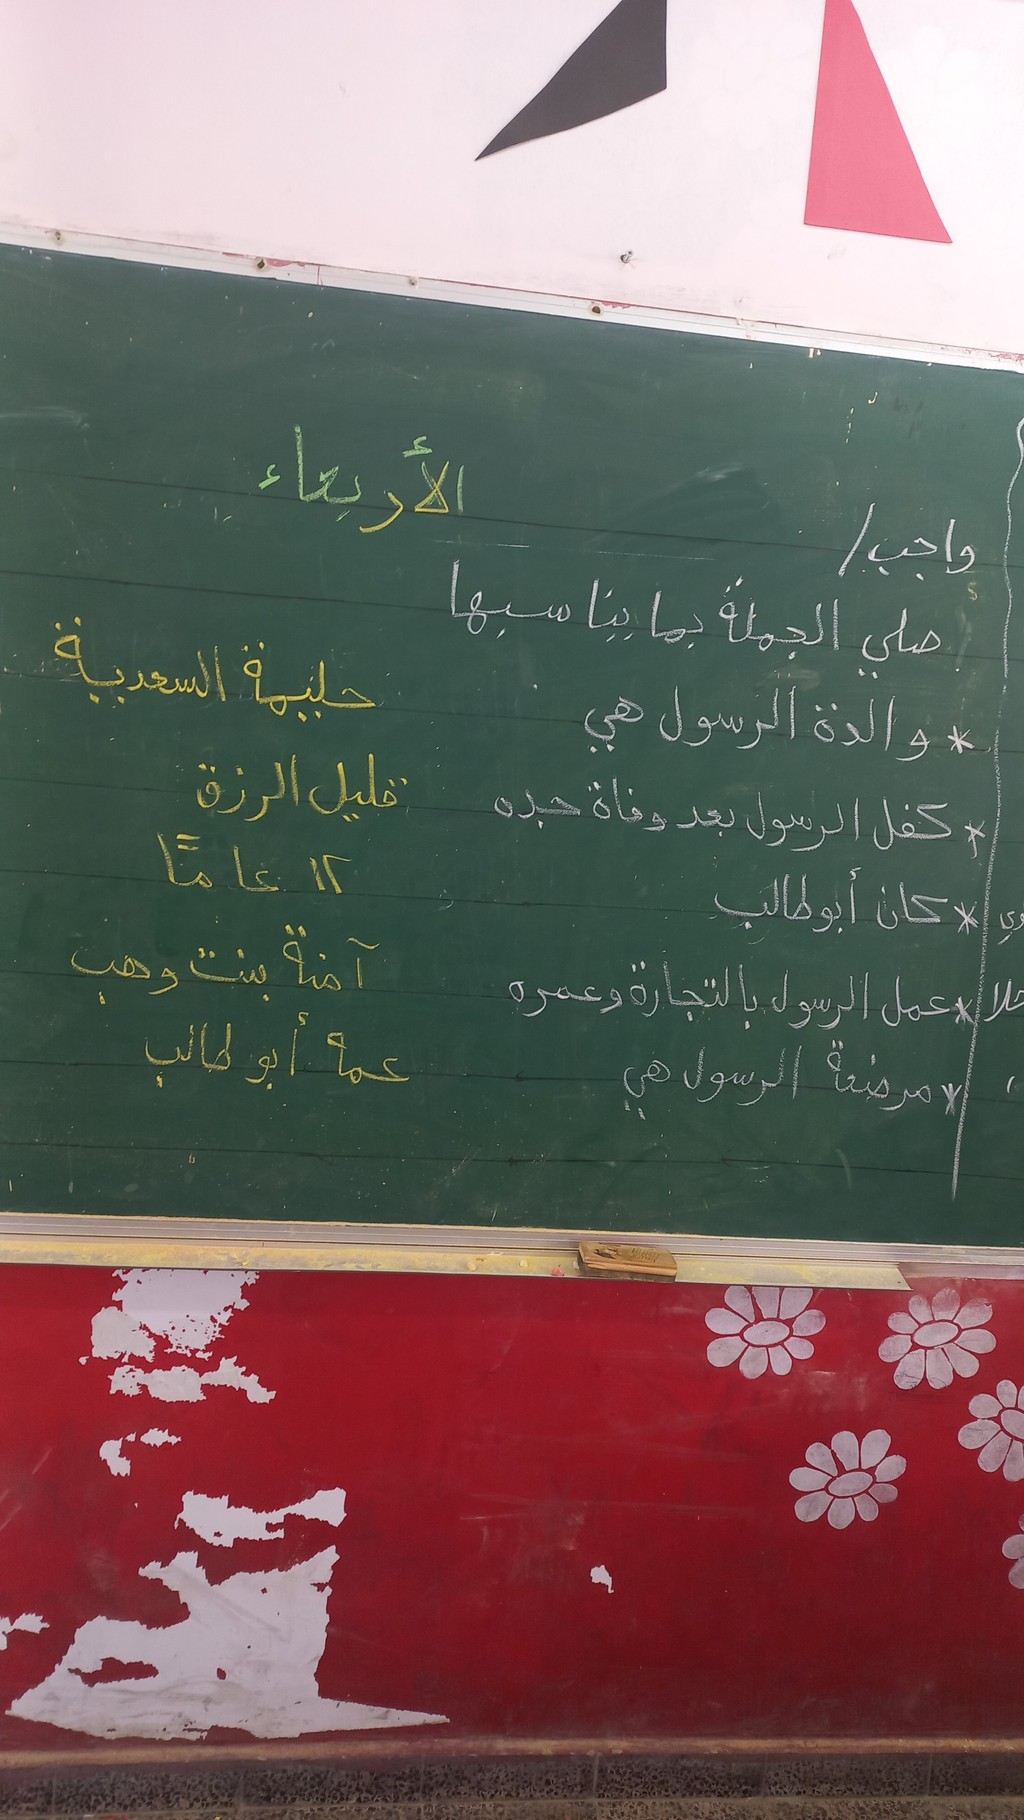 الأربعاء
واجب/
صلي الجملة بما يناسبها
* والدة الرسول هي
حليمة السعدية
* كفل الرسول بعد وفاة جده
قليل الرزق
* كان أبو طالب
١٢ عامًا
* عمل الرسول بالتجارة وعمره
آمنة بنت وهب
* مرضعة الرسول هي
عمه أبو طالب